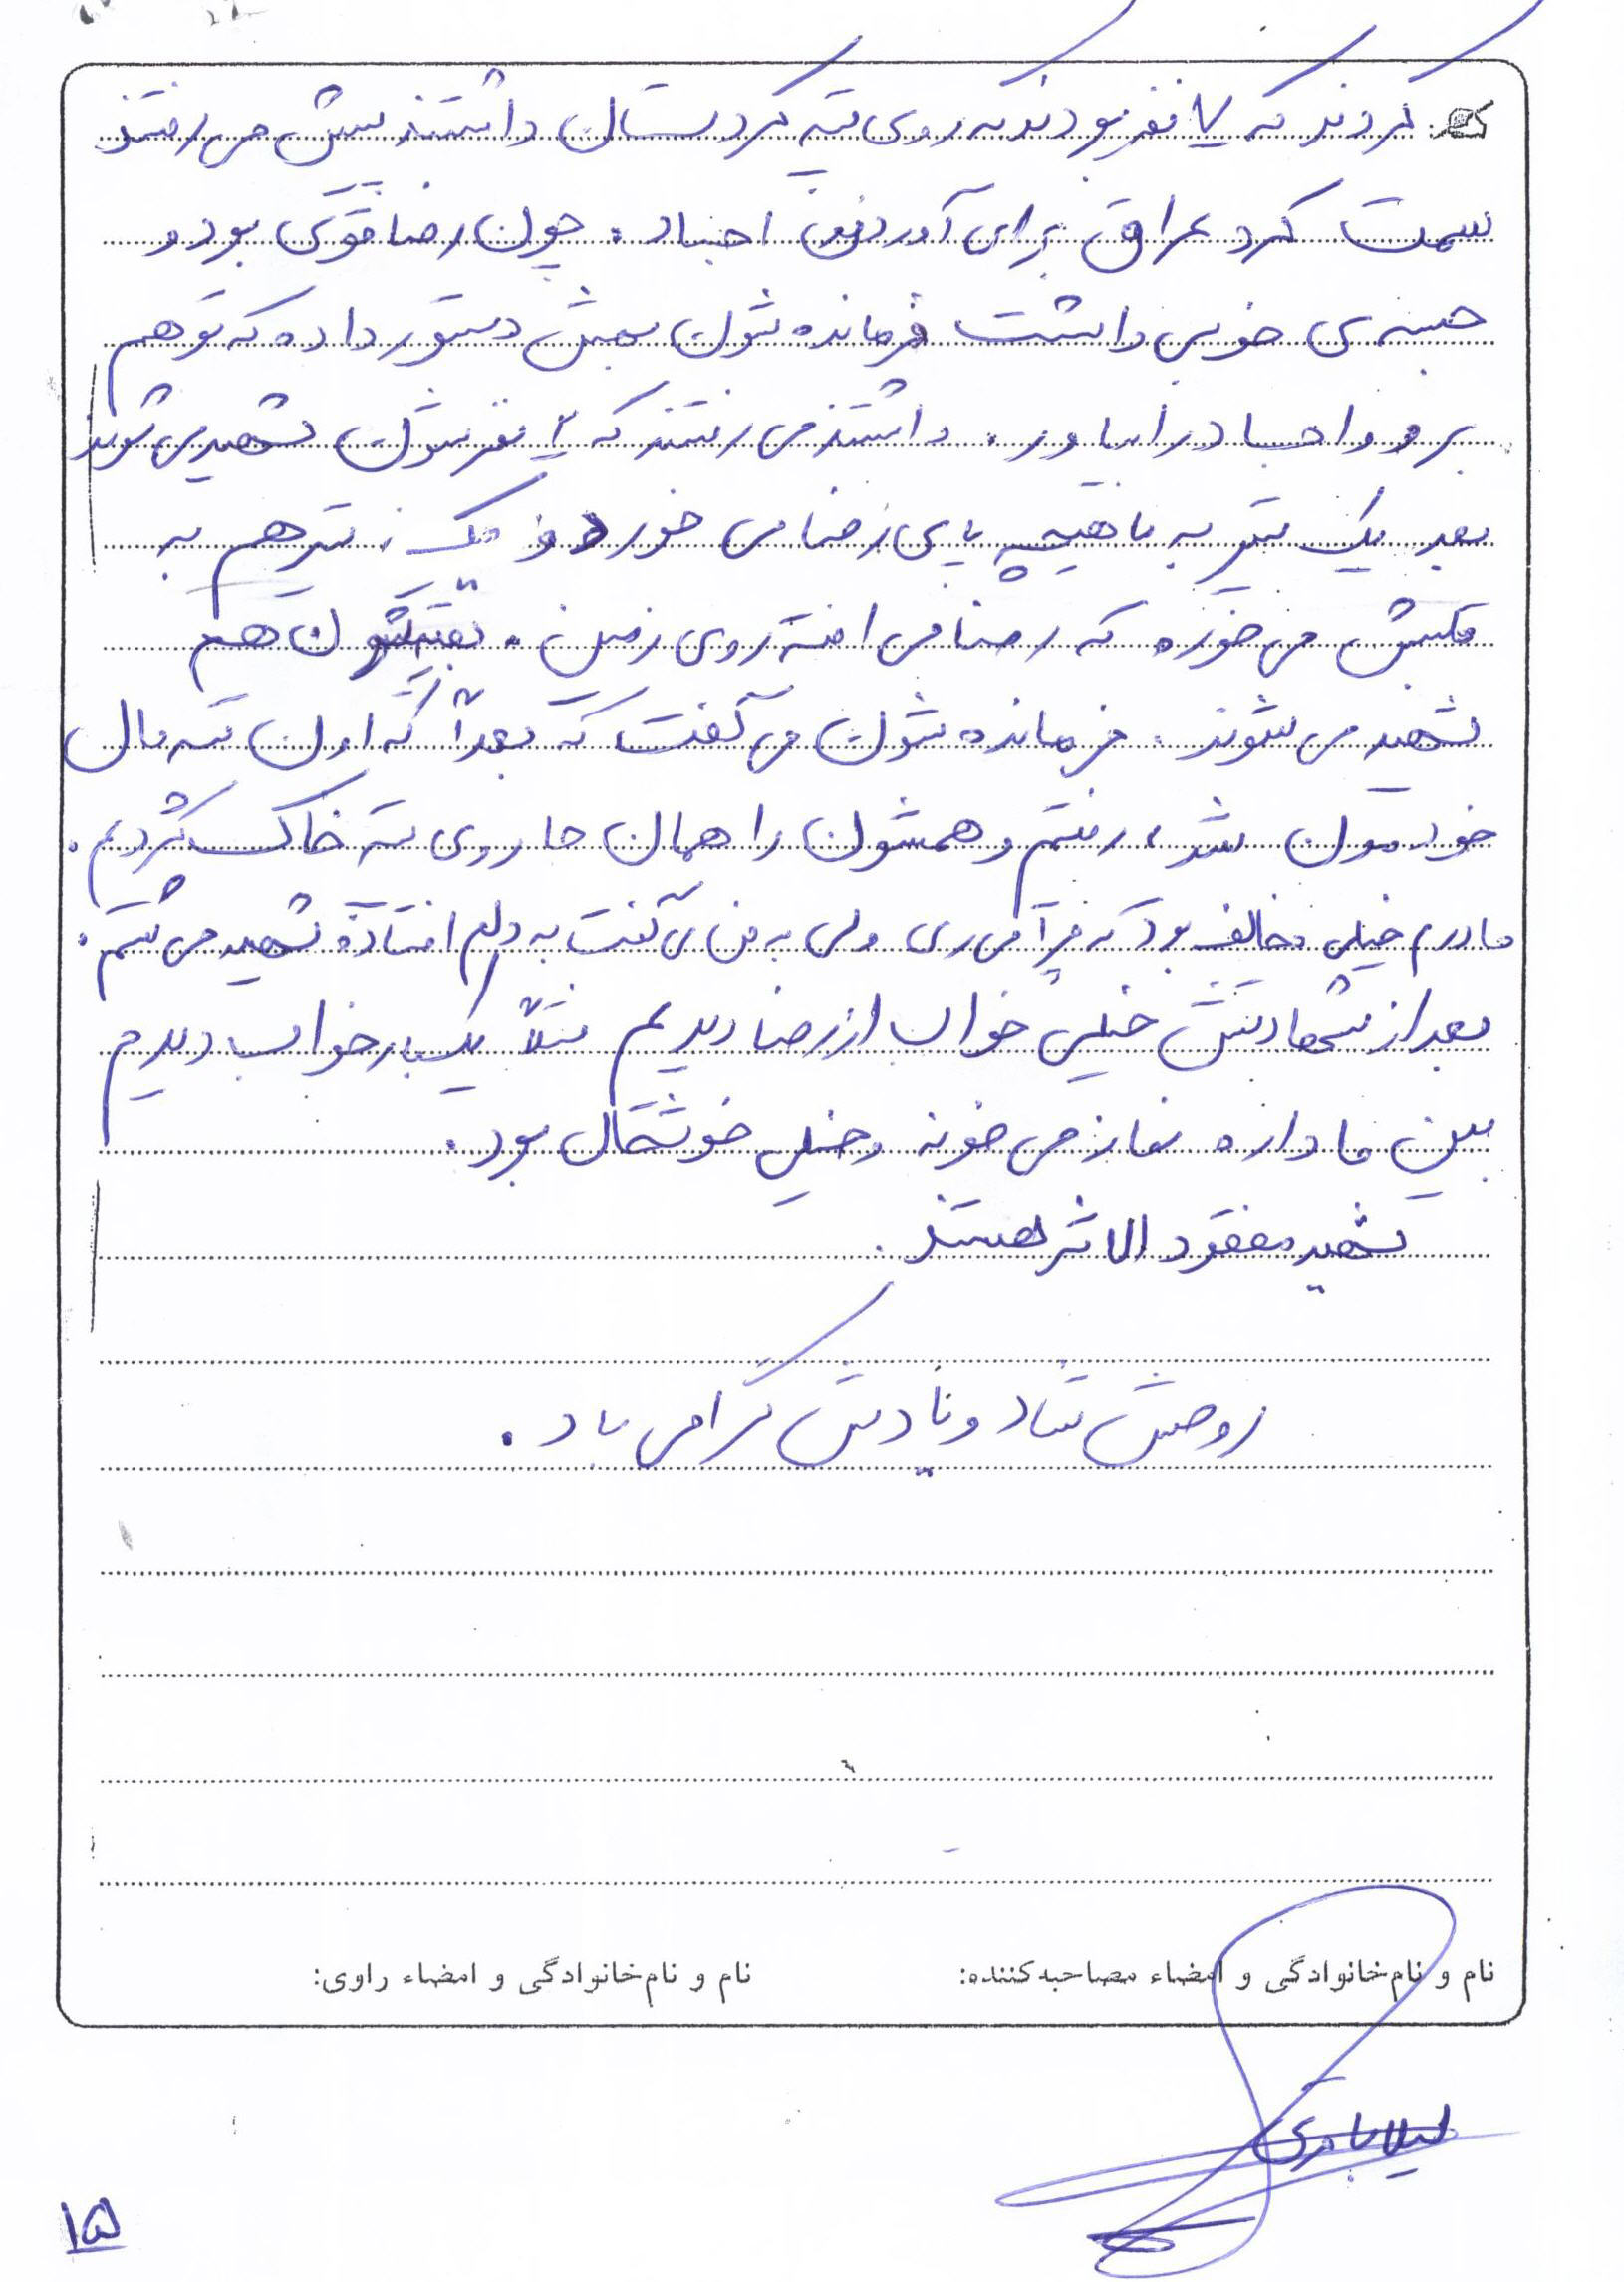 کردند که ۷ نفر بودند که روی تپه کردستان داشتند پیش می رفتند
سمت کرد عراق برای آوردن اجساد. چون رضا قوی بود و
جبنه ی خوبی داشت فرمانده شون بهش دستور داده که تو هم
برو و اجساد را بیاور. داشتند می رفتند که نفرشون شهید می شوند
بعد یک تیر به ماهیچه پای رضا می خورد و یک تیر هم به
قلبش می خوره که رضا می افته روی زمین. بقیه شون هم
شهید می شوند. فرمانده شون می گفت که بعداً که اون تپه مال
خودمون شد، رفتم و همشون را همان جا روی تپه خاک کردیم.
مادرم خیلی مخالف بود که چرا می ری ولی به من می گفت به دلم افتاده شهید می شم.
بعد از شهادتش خیلی خواب از رضا دیدیم مثلاً یکبار خواب دیدم
بین ما داره نماز می خونه و خیلی خوشحال بود.
شهید مفقود الاثر هستند.
روحش شاد و یادش گرامی باد.
نام و نام خانوادگی و امضاء مصاحبه کننده:
نام و نام خانوادگی و امضاء راوی:
لیلا
۱۵